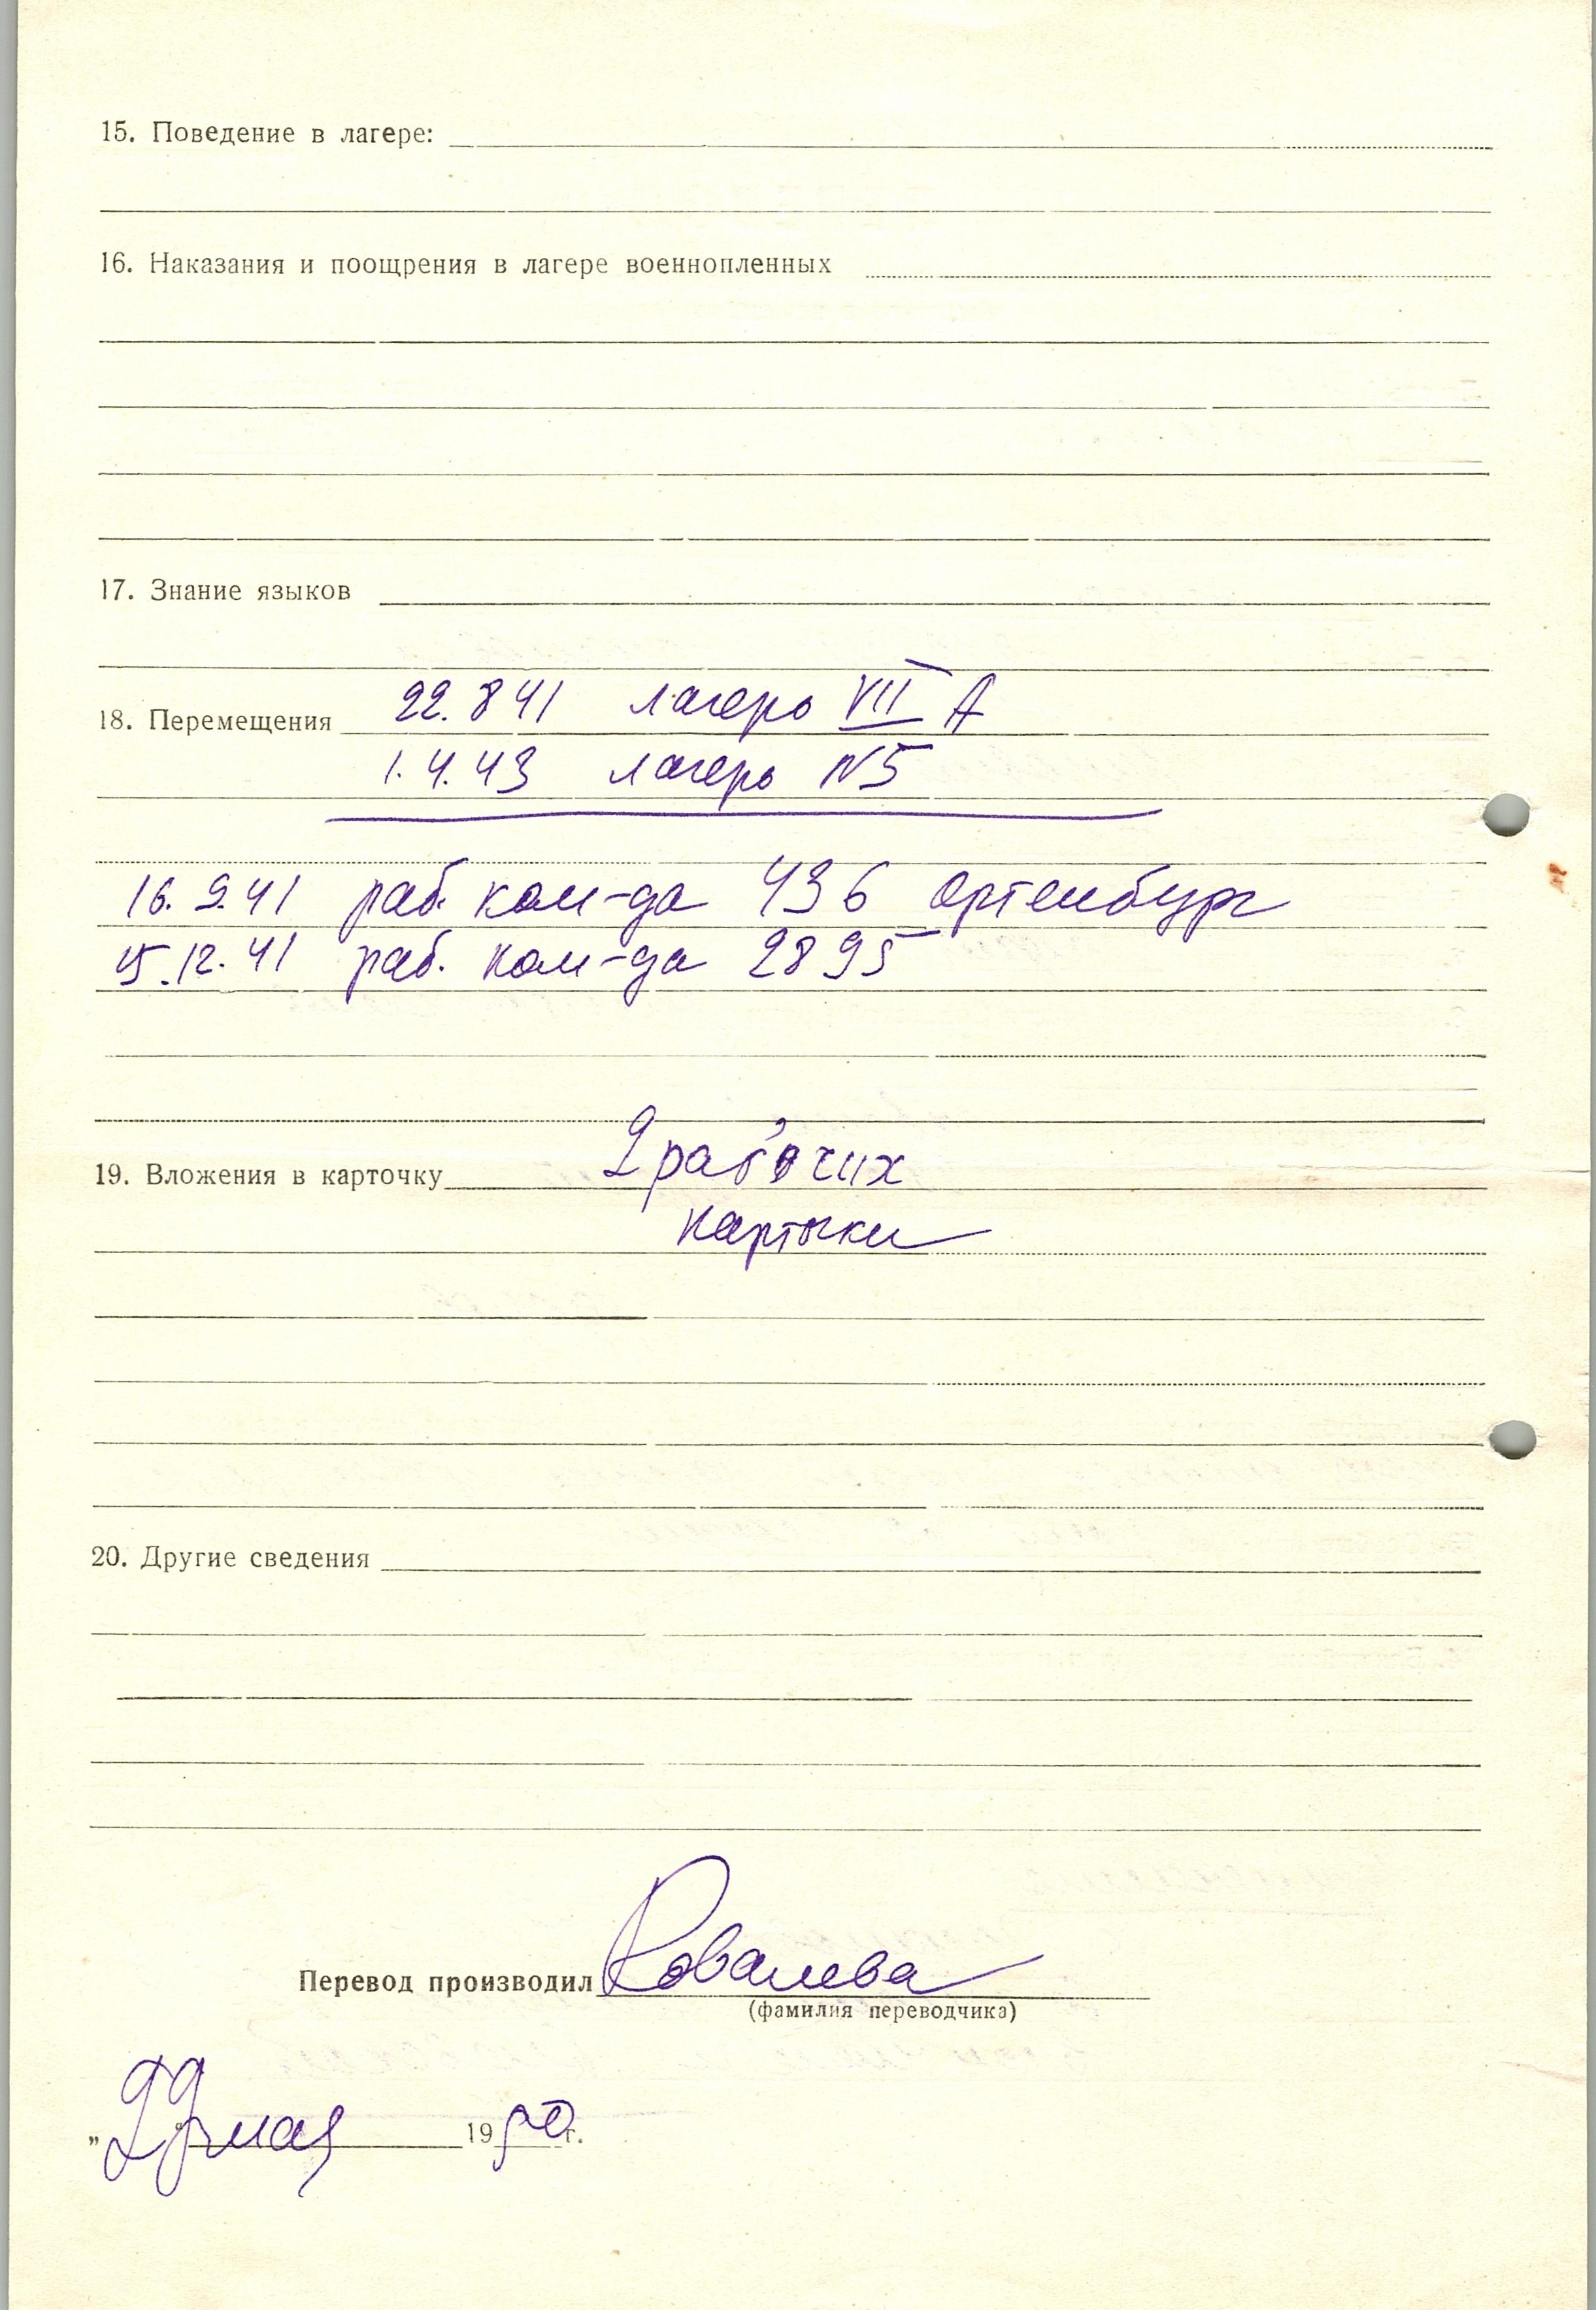 15. Поведение в лагере:
16. Наказания и поощрения в лагере военнопленных
17. Знание языков
18. Перемещения 22.8 41 лагерь VII A
1.4.43 лагерь N5
16.9.41 раб. ком-да 436 Ортенбург
15.12.41 раб. ком-да 2895
19. Вложения в карточку 2 рабочих
карточки
20. Другие сведения
Перевод производил Ковалева
(фамилия переводчика)
„ мая 1950 г.